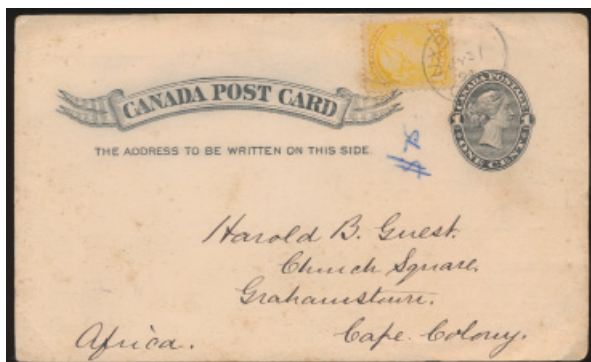 CANADA POST CARD
THE ADDRESS TO BE WRITTEN ON THIS SIDE.
CANADA POSTAGE
1 1
ONE CENT
Harold B. Guest.
Church Square.
Grahamstown.
Africa. Cape Colony.